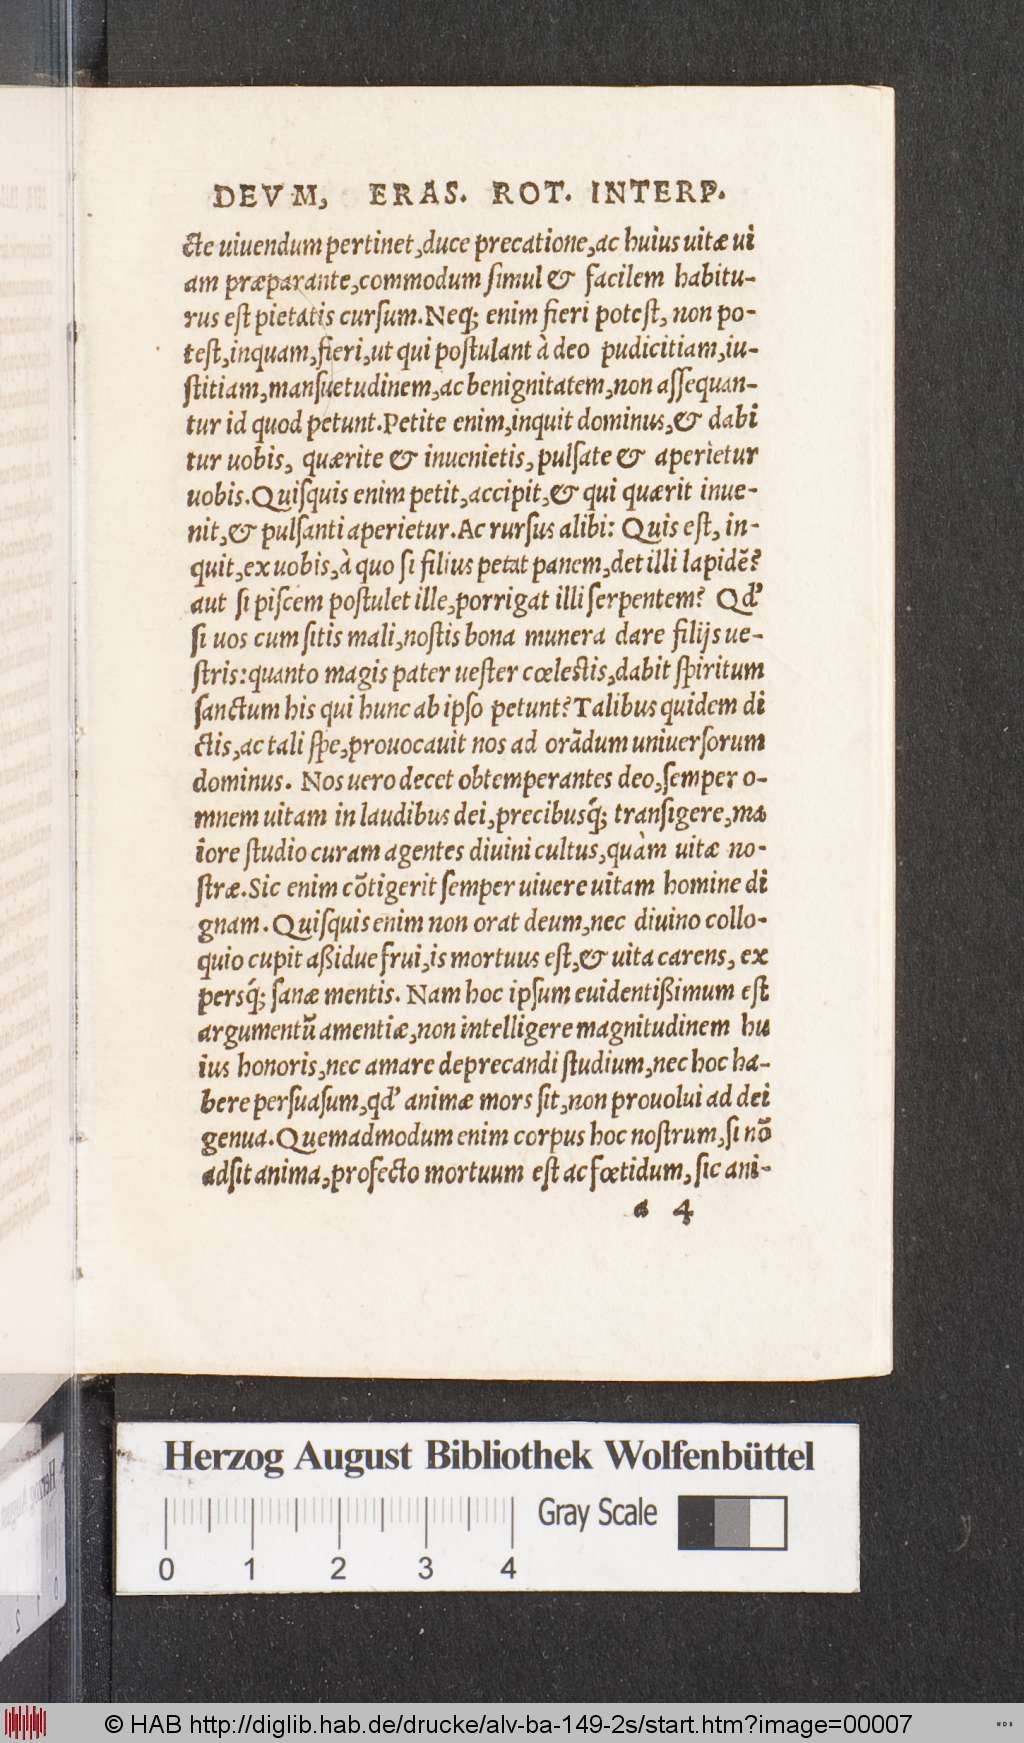 DEVM, ERAS. ROT. INTERP.
cte uiuendum pertinet, duce precatione, ac huius uitæ ui
am præparante, commodum simul & facilem habitu-
rus est pietatis cursum. Neq; enim fieri potest, non po-
test, inquam, fieri, ut qui postulant à deo pudicitiam, iu-
stitiam, mansuetudinem, ac benignitatem, non assequan-
tur id quod petunt. Petite enim, inquit dominus, & dabi
tur uobis, quærite & inuenietis, pulsate & aperietur
uobis. Quisquis enim petit, accipit, & qui quærit inue-
nit, & pulsanti aperietur. Ac rursus alibi: Quis est, in-
quit, ex uobis, à quo si filius petat panem, det illi lapidē?
aut si piscem postulet ille, porrigat illi serpentem? Qd'
si uos cum sitis mali, nostis bona munera dare filijs ue-
stris: quanto magis pater uester cœlestis, dabit spiritum
sanctum his qui hunc ab ipso petunt? Talibus quidem di
ctis, ac tali spe, prouocauit nos ad orādum uniuersorum
dominus. Nos uero decet obtemperantes deo, semper o-
mnem uitam in laudibus dei, precibusq́; transigere, ma
iore studio curam agentes diuini cultus, quàm uitæ no-
stræ. Sic enim cōtigerit semper uiuere uitam homine di
gnam. Quisquis enim non orat deum, nec diuino collo-
quio cupit aßidue frui, is mortuus est, & uita carens, ex
persq́; sanæ mentis. Nam hoc ipsum euidentißimum est
argumentū amentiæ, non intelligere magnitudinem hu
ius honoris, nec amare deprecandi studium, nec hoc ha-
bere persuasum, qd' animæ mors sit, non prouolui ad dei
genua. Quemadmodum enim corpus hoc nostrum, si nō
adsit anima, profecto mortuum est ac fœtidum, sic ani-
a 4
Herzog August Bibliothek Wolfenbüttel
Gray Scale
0 1 2 3 4
© HAB http://diglib.hab.de/drucke/alv-ba-149-2s/start.htm?image=00007